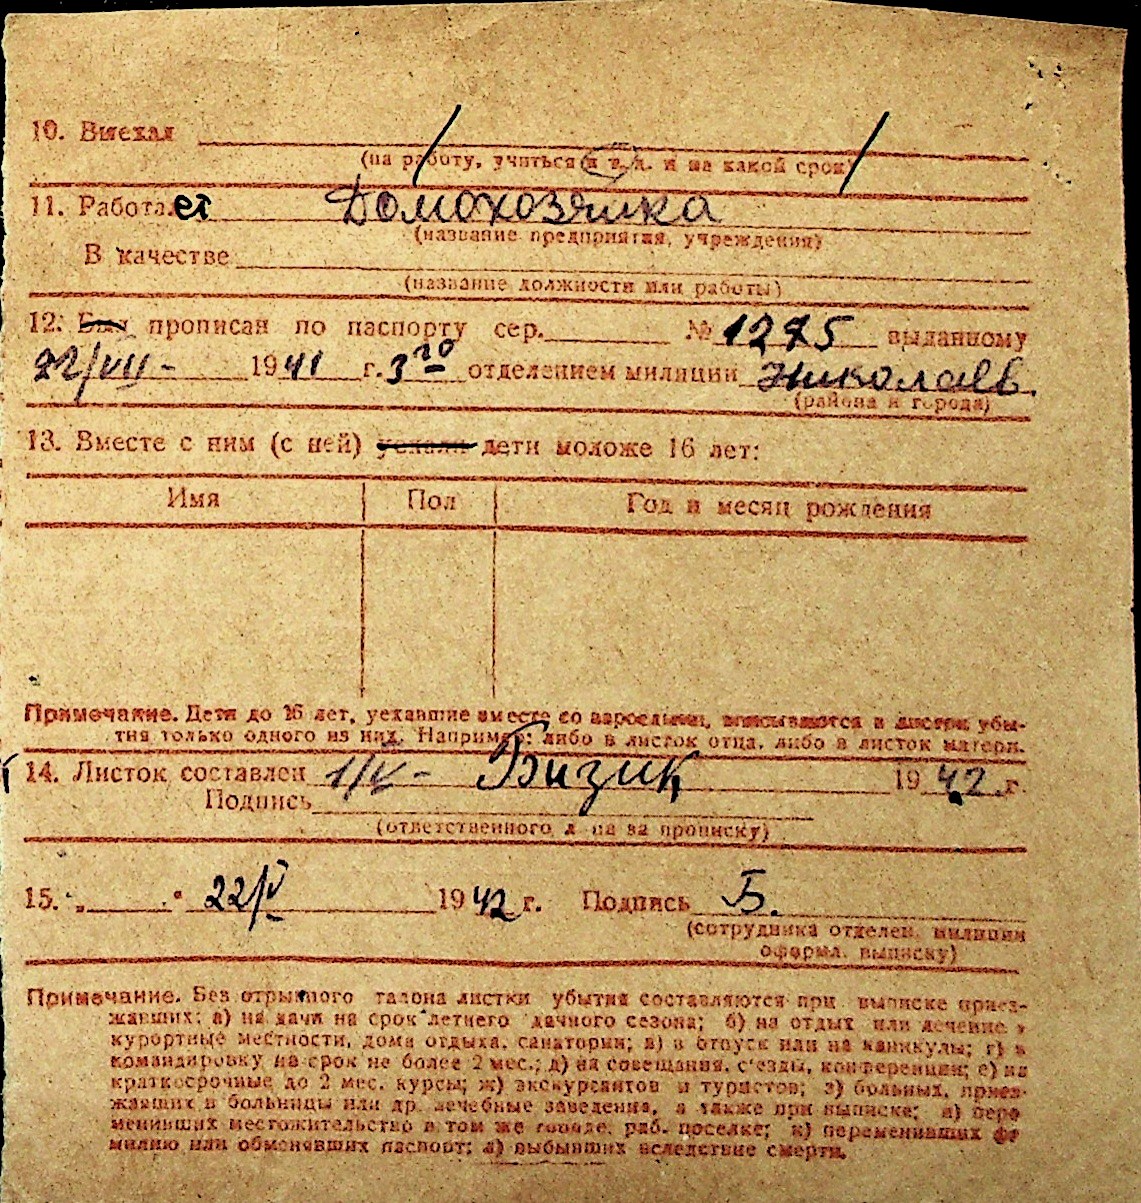 10. Выехал
(на работу, учиться и т. п. и на какой срок)
11. Работает Домохозяйка
(название предприятия, учреждения)
В качестве
(название должности или работы)
12. Был прописан по паспорту сер. № 1275 выданному
22/VII - 1941 г. 3го отделением милиции Николаев.
(района и города)
13. Вместе с ним (с ней) уехали дети моложе 16 лет:
Имя Пол Год и месяц рождения
Примечание. Дети до 16 лет, уехавшие вместе со взрослыми, вписываются в листок убы-
тия только одного из них. Например: либо в листок отца, либо в листок матери.
14. Листок составлен 1/V - Бизик 1942 г.
Подпись
(ответственного л на за прописку)
15. „ “ 22/V 1942 г. Подпись Б.
(сотрудника отделен. милиции
оформл. выписку)
Примечание. Без отрывного талона листки убытия составляются при выписке приез-
жавших: а) на дачи на срок летнего дачного сезона; б) на отдых или лечение в
курортные местности, дома отдыха, санатории; в) в отпуск или на каникулы; г) в
командировку на срок не более 2 мес.; д) на совещания, с'езды, конференции; е) на
краткосрочные до 2 мес. курсы; ж) экскурсантов и туристов; з) больных, приез-
жавших в больницы или др. лечебные заведения, а также при выписке; и) пере
менивших местожительство в том же городе, раб. поселке; к) переменивших фа
милию или обменявших паспорт; л) выбывших вследствие смерти.